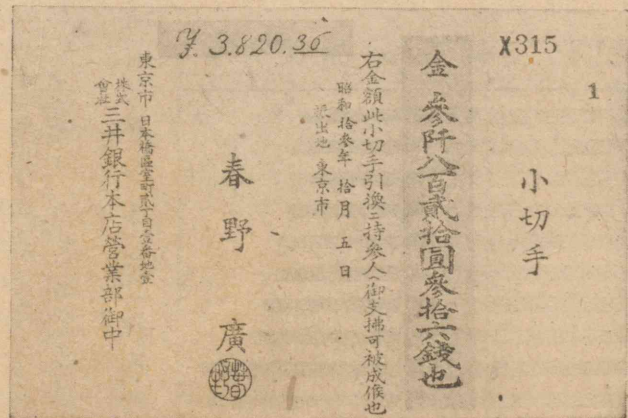 X315
1
小切手
金參阡八百貳拾圓參拾六錢也
¥. 3.820.36
右金額此小切手引換ニ持參人ヘ御支拂可被成候也
昭和拾參年拾月五日
振出地 東京市
春野廣
東京市日本橋區室町貳丁目壹番地壹
株式會社三井銀行本店營業部御中